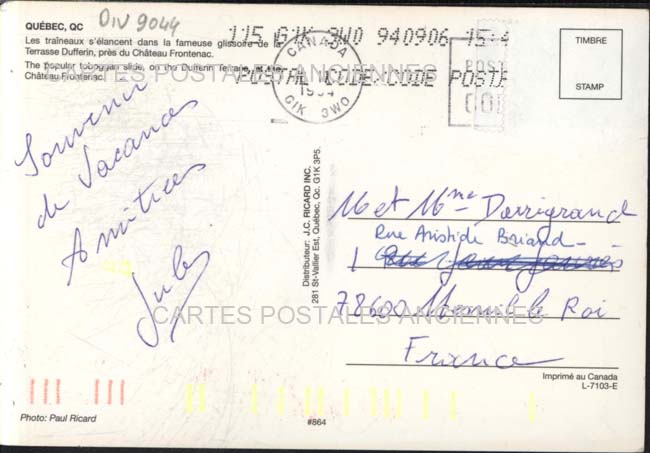 DIV 9044
QUÉBEC, QC
Les traîneaux s'élancent dans la fameuse glissoire de la
Terrasse Dufferin, près du Château Frontenac.
The popular toboggan slide, on the Dufferin Terrace, at the
Château Frontenac.
115 G1K 3W0 940906 15:4
POSTAL CODE/CODE POSTE
CANADA
1994
G1K 3W0
POST
COD
TIMBRE
STAMP
CARTES POSTALES ANCIENNES
Souvenir
de Vacances
Amitiées
Distributeur: J.C. RICARD INC.
281 St-Vallier Est, Québec, Qc. G1K 3P5.
M et Mme Darrigrand
Rue Aristide Briand
1
78600 Mesnil le Roi
France
CARTES POSTALES ANCIENNES
Imprimé au Canada
L-7103-E
Photo: Paul Ricard
#864